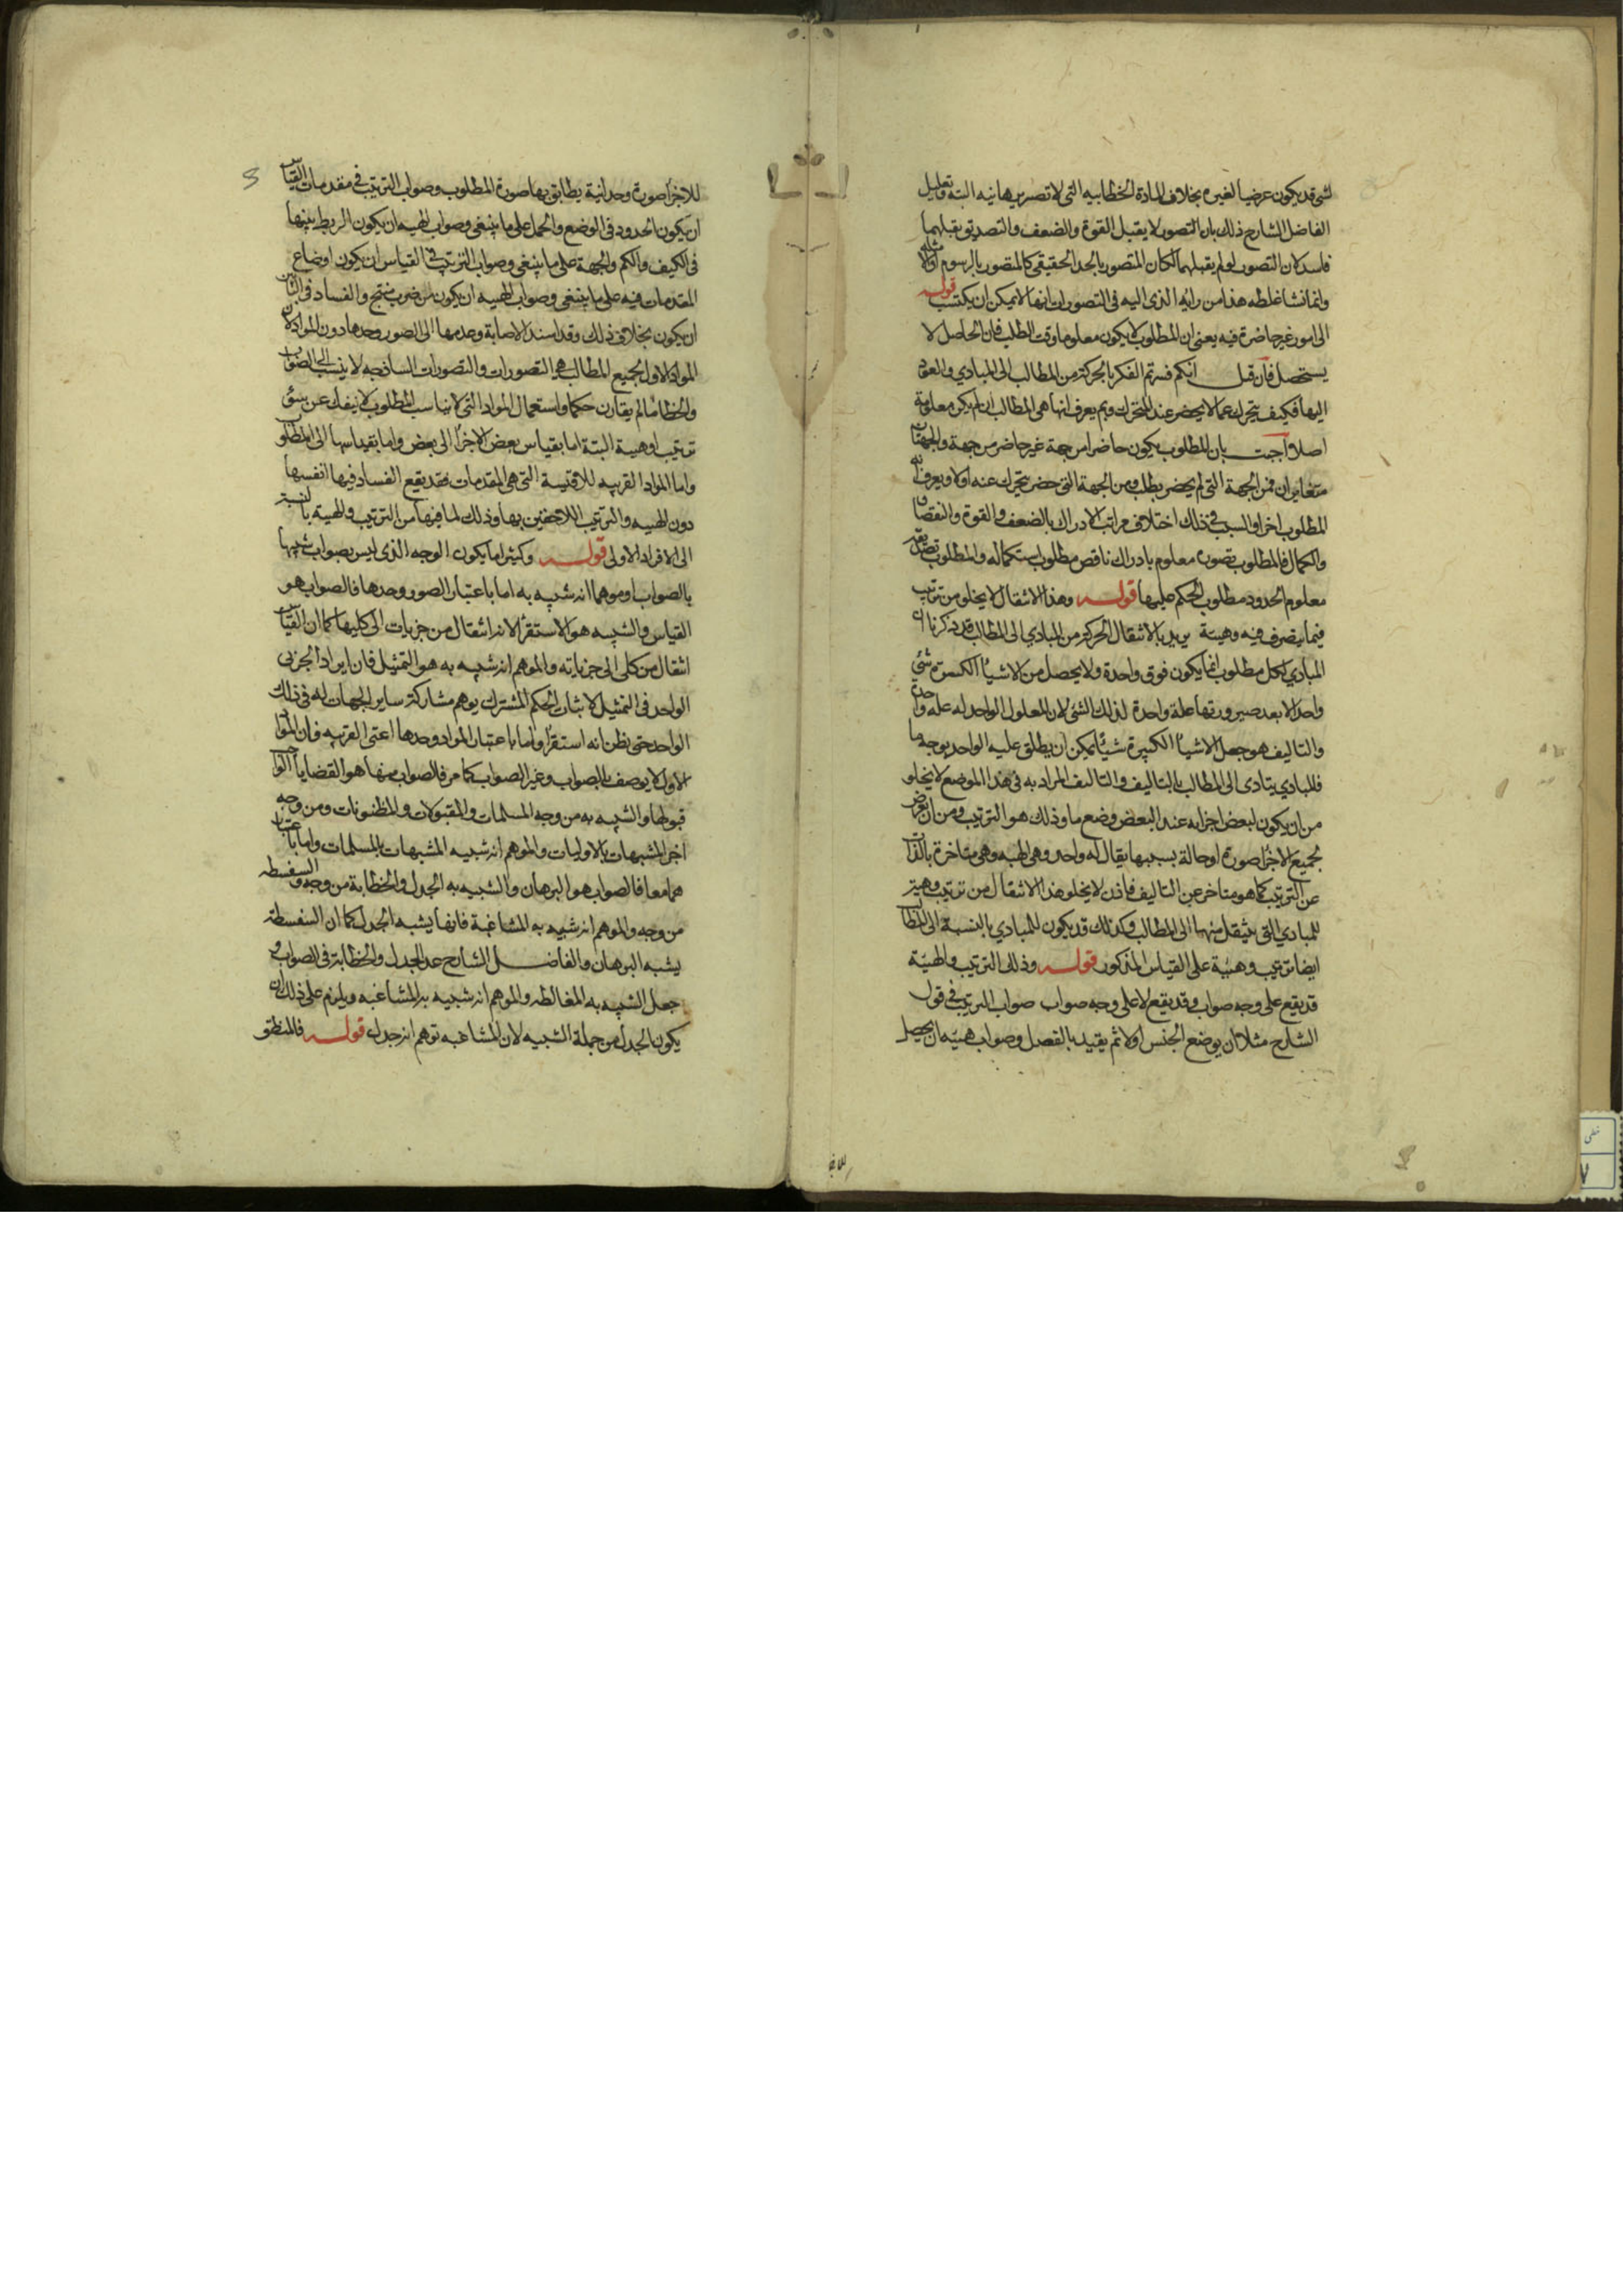 لشئ قد يكون عرضيا لغيره بخلاف المادة الخطابيه التى لا تصير برهانيه البتة وتعليل
الفاضل الشارح ذلك بان التصور لا يقبل القوة والضعف والتصديق يقبلهما
فاسد لان التصور لو لم يقبلهما لكان المتصور بالحد الحقيقى كالمتصور بالرسوم او الامثلة
وانما نشا غلطه هذا من رايه الذى اليه فى التصورات انها لا يمكن ان يكتسب قوله
الى امور غير حاضرة فيه يعنى ان المطلوب لا يكون معلوما وقت الطلب فان الحاصل لا
يستحصل فان قيل انكم فسرتم الفكر بالحركة من المطالب الى المبادي والعود
اليها فكيف يتحرك عما لا يحضر عند المتحرك وبم يعرف انها هى المطالب ان لم يكن معلومة
اصلا اجيب بان المطلوب يكون حاضرا من جهة غير حاضر من جهة والجهتان
متغايرتان فمن الجهة التى لم يحضر يطلب ومن الجهة التى حضر يتحرك عنه اولا ويعرف انه
المطلوب اخرا والسبب فى ذلك اختلاف مراتب الادراك بالضعف والقوة والنقصان
والكمال فالمطلوب تصوره معلوم بادراك ناقص مطلوب استكماله والمطلوب تصديقه
معلوم الحدود مطلوب الحكم عليها قوله وهذا الانتقال لا يخلو من ترتيب
فيما يتصرف فيه وهيئة يريد بالانتقال الحركة من المبادي الى المطالب قد ذكرنا ان
المبادي لكل مطلوب انما يكون فوق واحدة ولا يحصل من الاشياء الكثيرة شئ
واحد الا بعد صيرورتها علة واحدة لذلك الشئ لان المعلول الواحد له علة واحدة
والتاليف هو جعل الاشياء الكثيرة شيئا يمكن ان يطلق عليه الواحد بوجه ما
فللمبادي يتادى الى المطالب بالتاليف والتاليف المراد به فى هذا الموضع لا يخلو
من ان يكون لبعض اجزايه عند البعض وضع ما وذلك هو الترتيب ومن ان يعرض
لجميع الاجزا صورة او حالة بسببها يقال له واحد وهى الهيه وهى متاخرة بالذات
عن الترتيب كما هو متاخر عن التاليف فاذن لا يخلو هذا الانتقال من ترتيب وهيئة
للمبادي التى ينتقل منها الى المطالب وكذلك قد يكون للمبادي بالنسبة الى المطالب
ايضا ترتيب وهيئة على القياس المذكور قوله وذلك الترتيب والهيئة
قد يقع على وجه صواب وقد يقع لا على وجه صواب صواب الترتيب فى قول
الشارح مثلا ان يوضع الجنس اولا ثم يقيد بالفصل وصواب هيئته ان يحصل
للاجزا
للاجزا صورة وحدانية يطابق بها صورة المطلوب وصواب الترتيب فى مقدمات القياس
ان يكون الحدود فى الوضع والحمل على ما ينبغى وصواب الهيئه ان يكون الربط بينها
فى الكيف والكم والجهة على ما ينبغى وصواب الترتيب فى القياس ان يكون اوضاع
المقدمات فيه على ما ينبغى وصواب الهيئه ان يكون من ضرب منتج والفساد فى البابين
ان يكون بخلاف ذلك وقد اسند الاصابة وعدمها الى الصور وحدها دون المواد لان
المواد الاول لجميع المطالب هى التصورات والتصورات الساذجه لا ينسب الى الصواب
والخطا ما لم يقارن حكما واستعمال المواد التى لا يناسب المطلوب لا ينفك عن سوء
ترتيب او هيئة البتة اما بقياس بعض الاجزا الى بعض واما بقياسها الى المطلوب
واما المواد القريبه للاقيسة التى هى المقدمات فقد يقع الفساد فيها انفسها
دون الهيه والترتيب اللاحقين بها وذلك لما فيها من الترتيب والهيئة بالنسبة
الى الافراد الاولى قوله وكثيرا ما يكون الوجه الذى ليس بصواب شبيها
بالصواب او موهما انه شبيه به اما باعتبار الصور وحدها فالصواب هو
القياس والشبيه هو الاستقرا لانه انتقال من جزيات الى كليها كما ان القياس
انتقال من كلى الى جزياته والموهم انه شبيه به هو التمثيل فان ايراد الجزئى
الواحد فى التمثيل لاثبات الحكم المشترك يوهم مشاركة ساير الجهات له فى ذلك
الواحد حتى يظن انه استقرا واما باعتبار المواد وحدها اعنى القريبه فان المواد
الاول لا يوصف بالصواب وغير الصواب كما مر فالصواب منها هو القضايا الواجب
قبولها والشبيه به من وجه المسلمات والمقبولات والمظنونات ومن وجه
اخر المشبهات بالاوليات والموهم انه شبيه المشبهات بالمسلمات واما باعتبار
هما معا فالصواب هو البرهان والشبيه به الجدل والخطابة من وجه والسفسطه
من وجه والموهم انه شبيه به المشاغبة فانها يشبه الجدل كما ان السفسطة
يشبه البرهان والفاضل الشارح عد الجدل والخطابة فى الصواب و
جعل الشبيه به المغالطه والموهم انه شبيه به المشاغبه ويلزم على ذلك ان
يكون الجدل من جملة الشبيه لان المشاغبه توهم انه جدل قوله فالمنطق